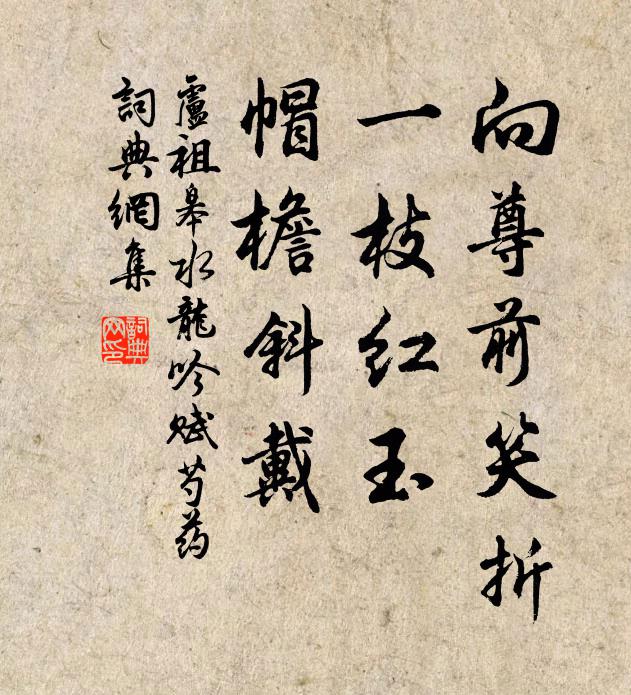 向尊前笑折
一枝红玉
帽檐斜戴
盧祖皋水龍吟赋芍药
詞典網集
詞典
网印